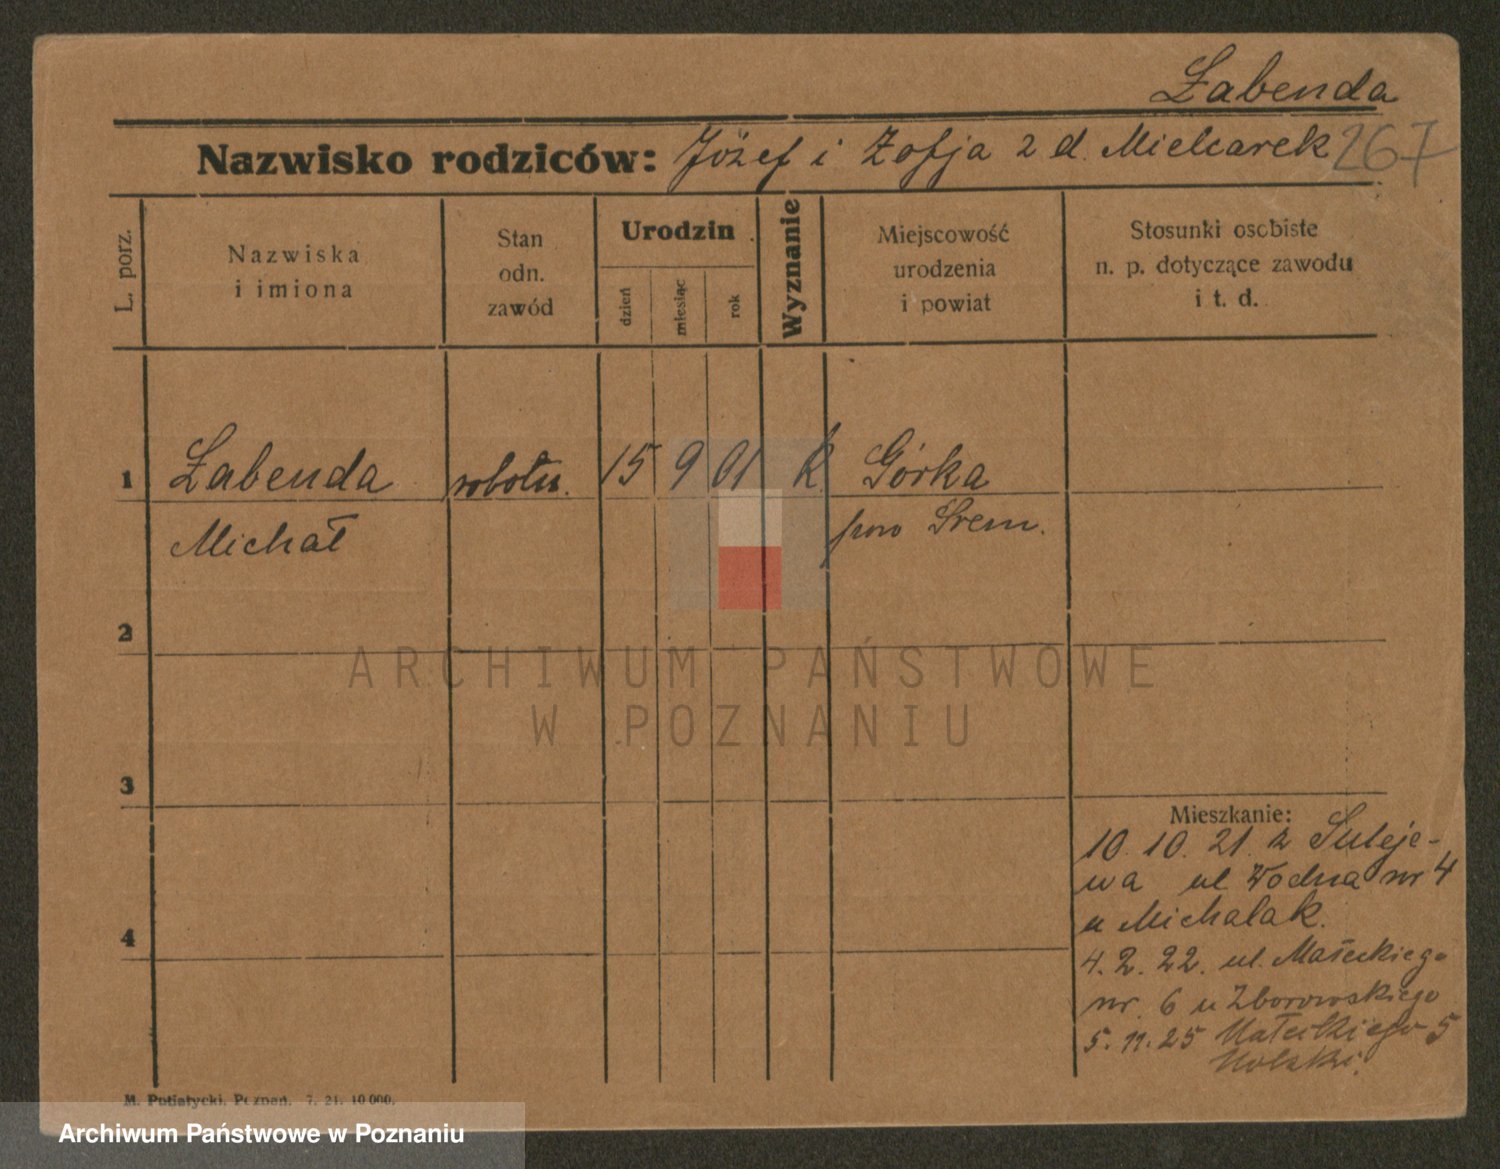 Łabenda
Nazwisko rodziców: Józef i Zofja z d. Mielcarek 267
L. porz.
Nazwiska
i imiona
Stan
odn.
zawód
Urodzin
dzień
miesiąc
rok
Wyznanie
Miejscowość
urodzenia
i powiat
Stosunki osobiste
n. p. dotyczące zawodu
i t. d.
1 Łabenda robotn. 15 9 01 k. Górka
Michał pow Śrem.
2
3
4
ARCHIWUM PAŃSTWOWE
W POZNANIU
Mieszkanie:
10. 10. 21. z Suleje-
wa ul Wodna nr 4
u Michalak.
4. 2. 22. ul. Małeckiego
nr. 6 u Zborowskiego
5. 11. 25 Małeckiego 5
M. Putiatycki, Poznań. 7. 21. 10 000.
Archiwum Państwowe w Poznaniu